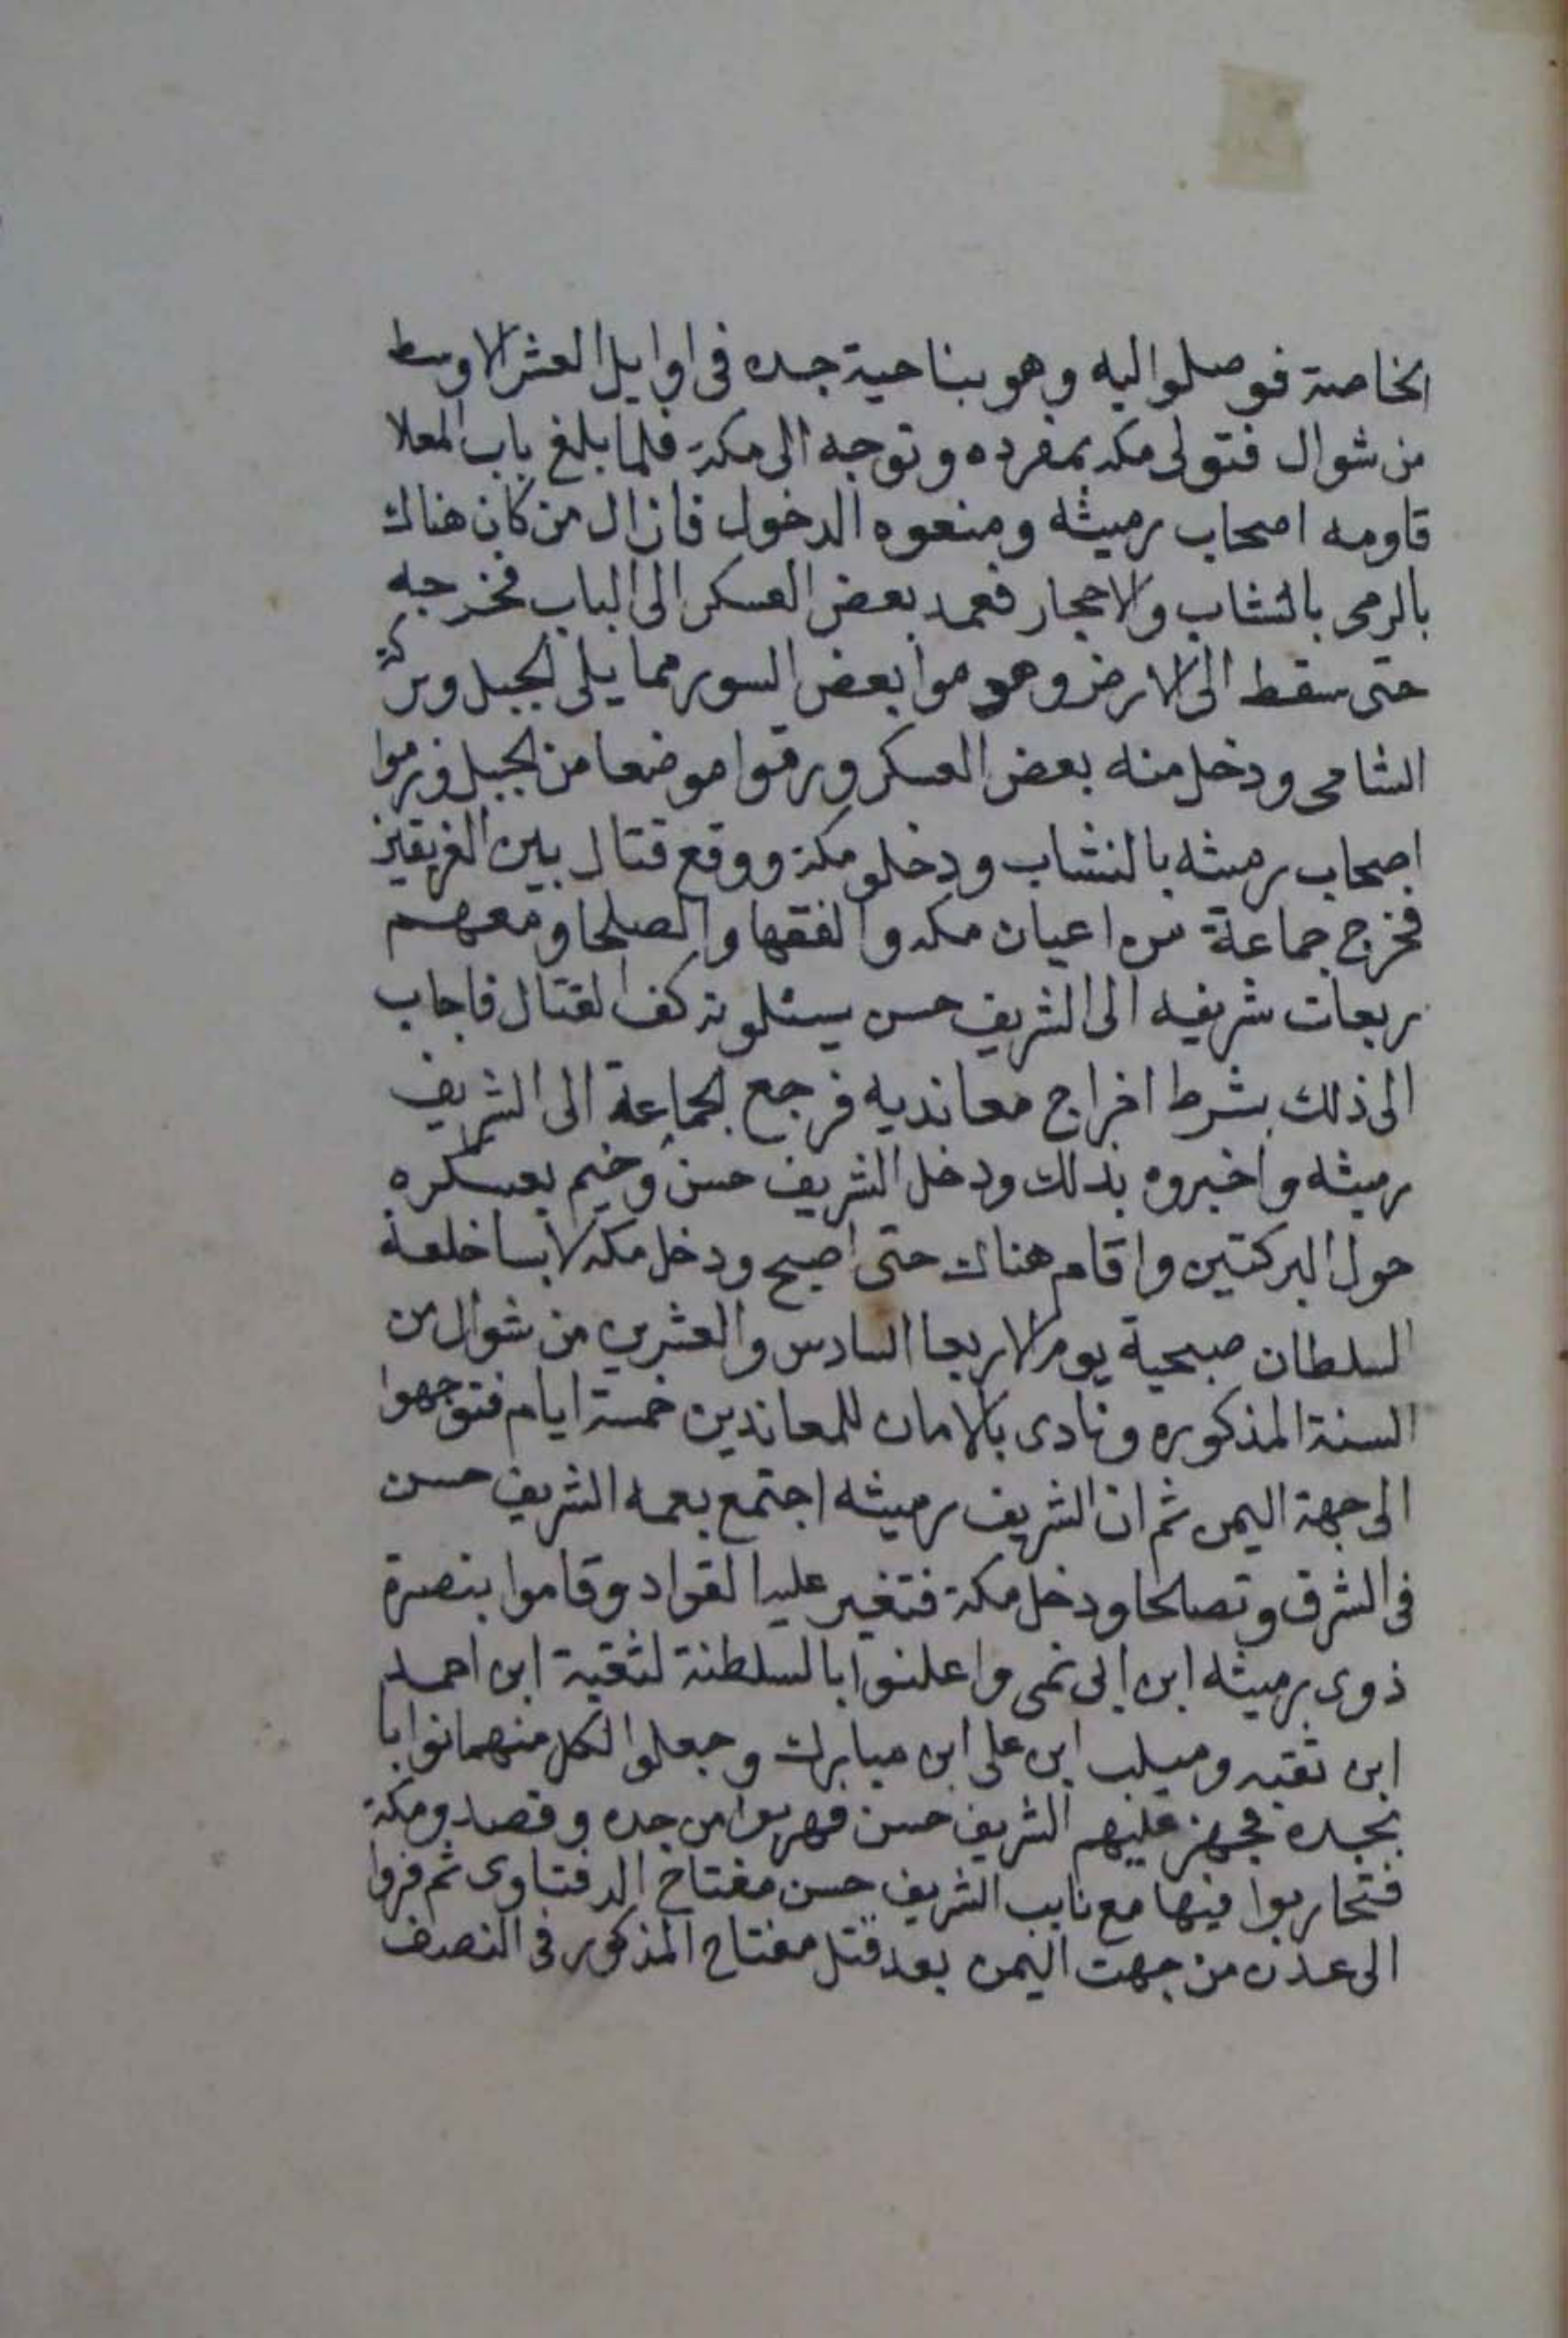 الخاصة فوصلوا اليه وهو بناحية جده فى اوايل العشر الاوسط
من شوال فتولى مكه بمفرده وتوجه الى مكة فلما بلغ باب المعلا
قاومه اصحاب رميثه ومنعوه الدخول فازال من كان هناك
بالرمى بالنشاب والاحجار فعمد بعض العسكر الى الباب فخرجه
حتى سقط الى الارض وهدموا بعض السور مما يلى الجبل وبركة
الشامى ودخل منه بعض العسكر ورقوا موضعا من الجبل ورموا
اصحاب رميثه بالنشاب ودخلو مكة ووقع قتال بين الفريقين
فخرج جماعة من اعيان مكه والفقها والصلحا ومعهم
ربعات شريفه الى الشريف حسن يسئلونه كف القتال فاجاب
الى ذلك بشرط اخراج معانديه فرجع الجماعة الى الشريف
رميثه واخبروه بذلك ودخل الشريف حسن وخيم بعسكره
حول البركتين واقام هناك حتى اصبح ودخل مكه لابسا خلعة
السلطان صبحية يوم الاربعا السادس والعشرين من شوال من
السنة المذكوره ونادى بالامان للمعاندين خمسة ايام فتوجهوا
الى جهة اليمن ثم ان الشريف رميثه اجتمع بعمه الشريف حسن
فى الشرق وتصالحا ودخل مكة فتغير عليه القواد وقاموا بنصرة
ذوى رميثه ابن ابى نمى واعلنوا بالسلطنة لثقبة ابن احمد
ابن ثقبه وميلب ابن على ابن مبارك وجعلوا لكل منهما نوابا
بجده فجهز عليهم الشريف حسن فهربوا من جده وقصدو مكة
فتحاربوا فيها مع نايب الشريف حسن مفتاح الدفتاوى ثم فروا
الى عدن من جهت اليمن بعد قتل مفتاح المذكور فى النصف